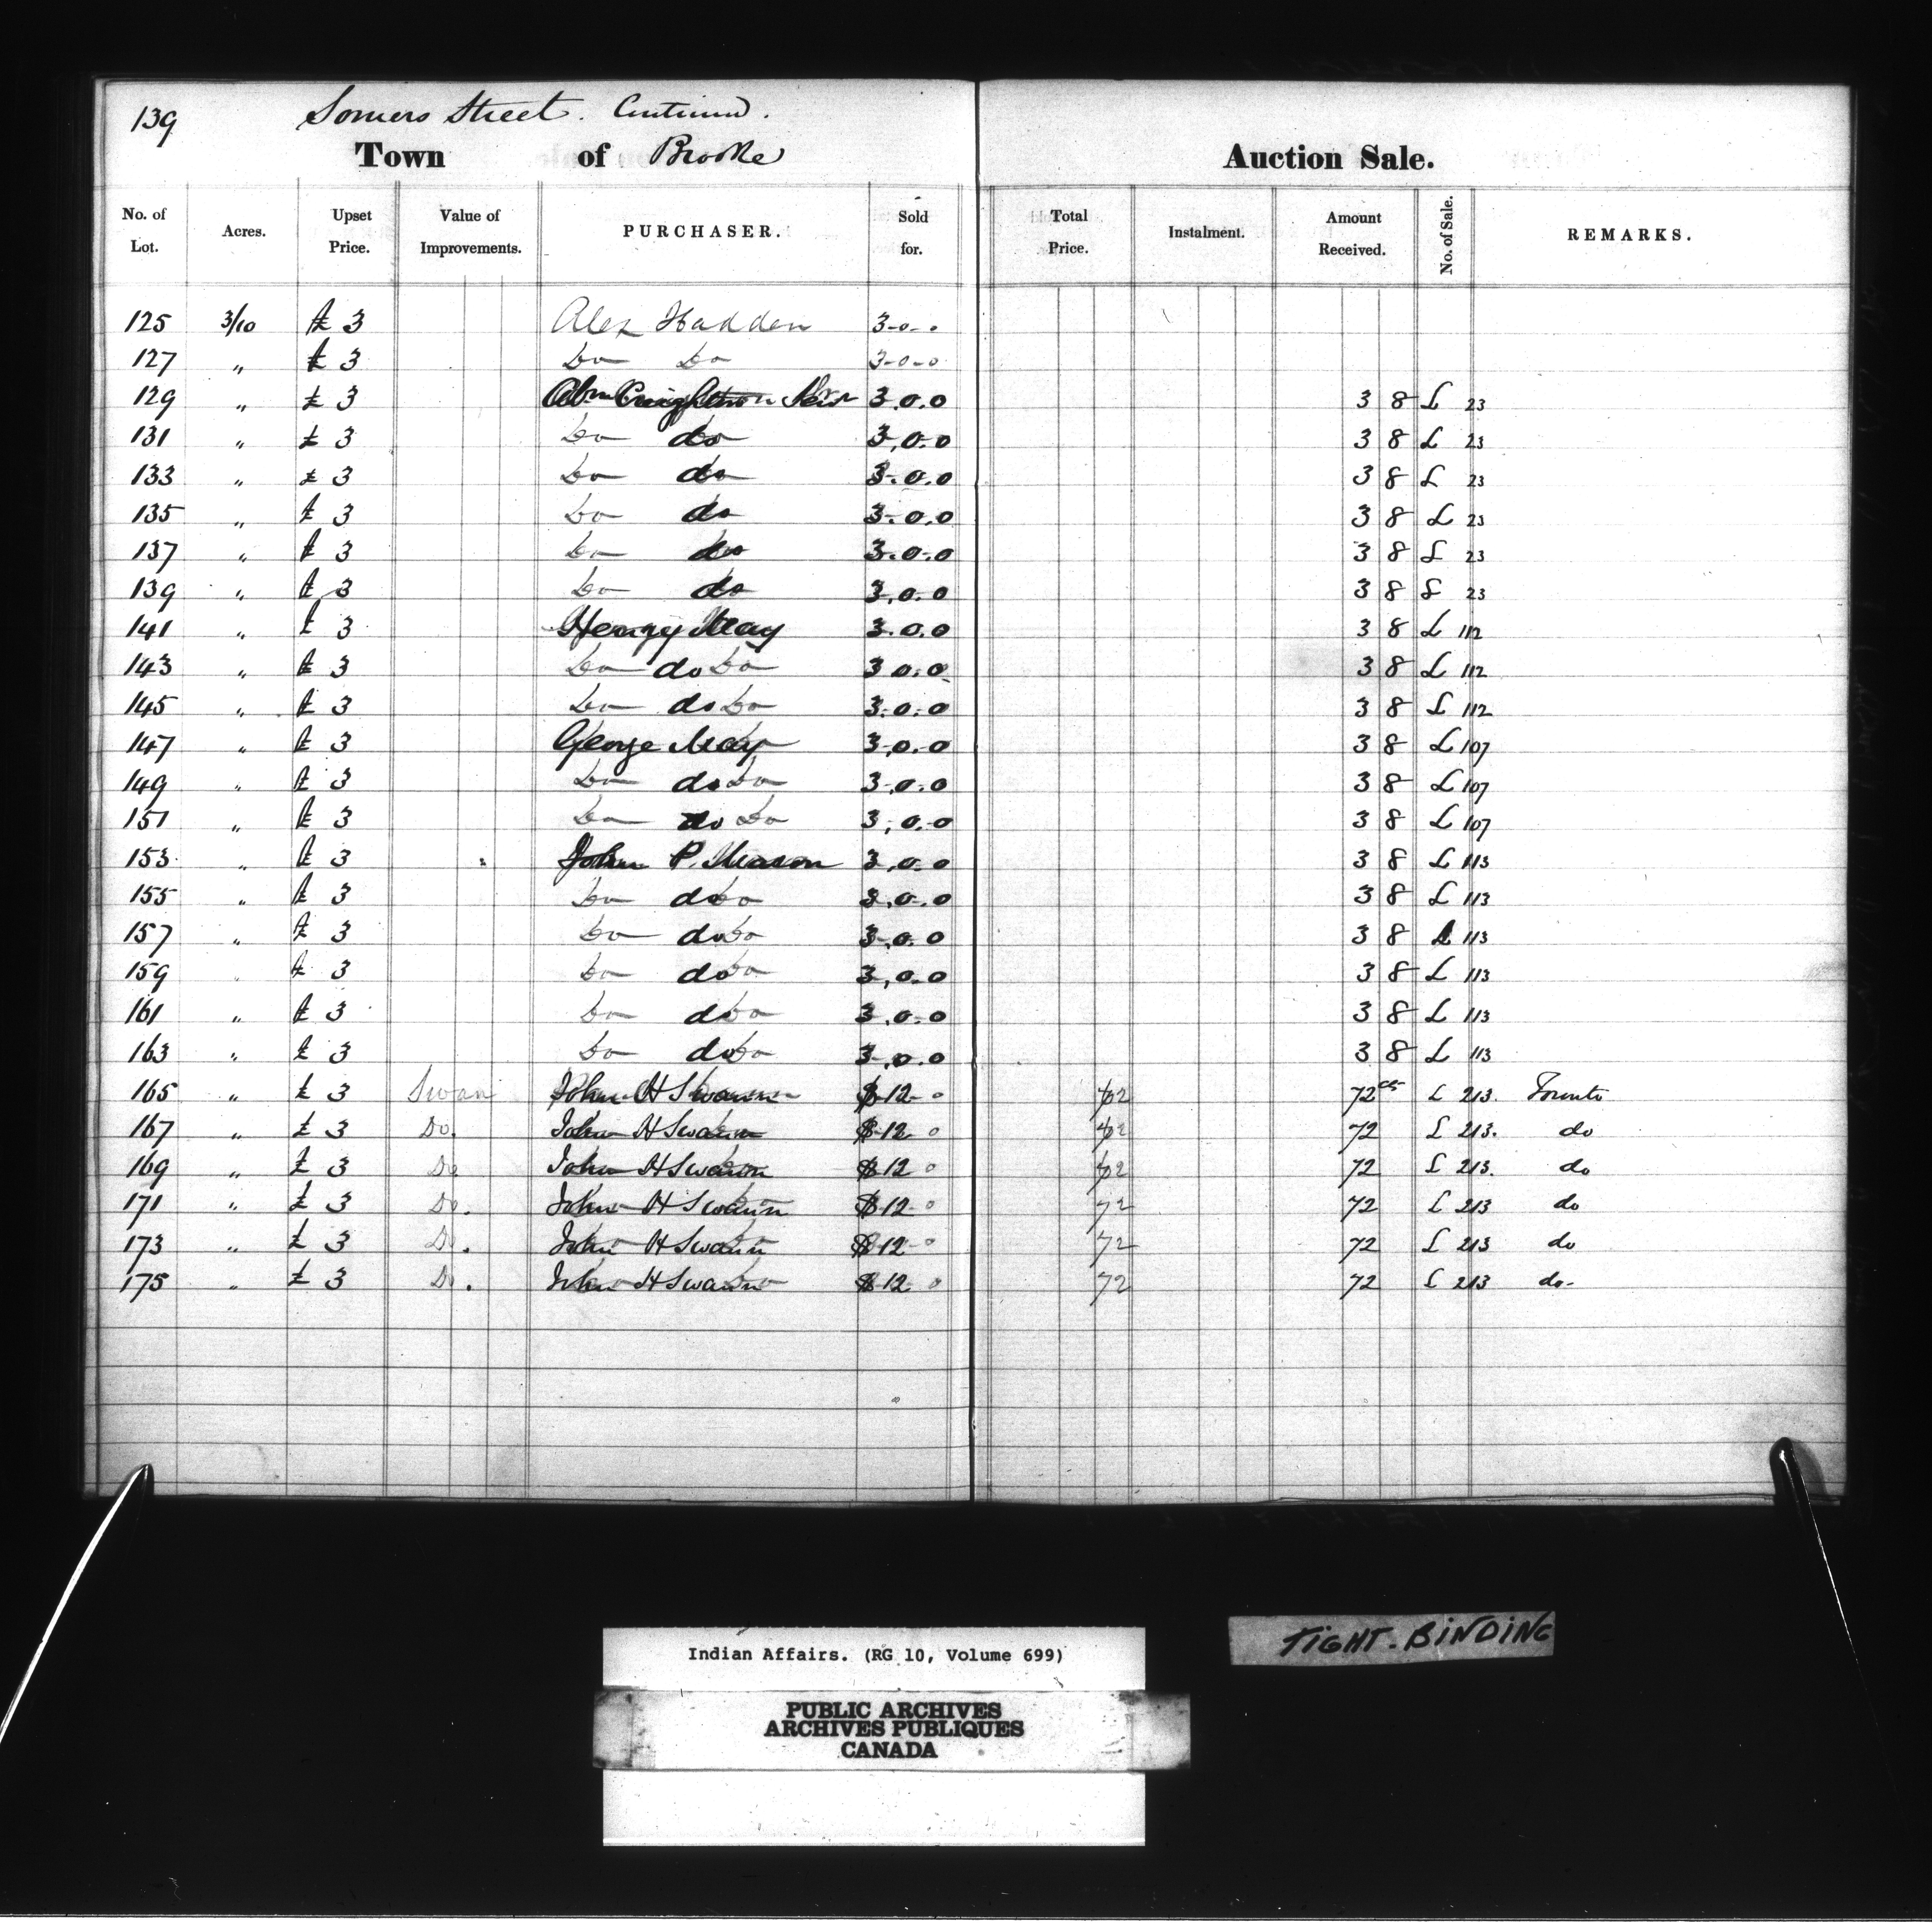 139 Somers Street. Continued.
Town of Brooke Auction Sale.
No. of Lot. Acres. Upset Price. Value of Improvements. PURCHASER. Sold for. Total Price. Instalment. Amount Received. No. of Sale. REMARKS.
125 3/10 £ 3 Alex Hadden 3-0-0
127 " £ 3 Do Do 3-0-0
129 " £ 3 Abm Creighton 3.0.0 3 8 L 23
131 " £ 3 Do do 3.0.0 3 8 L 23
133 " £ 3 Do do 3.0.0 3 8 L 23
135 " £ 3 Do do 3.0.0 3 8 L 23
137 " £ 3 Do do 3.0.0 3 8 L 23
139 " £ 3 Do do 3.0.0 3 8 L 23
141 " £ 3 Henry May 3.0.0 3 8 L 112
143 " £ 3 Do do Do 3 0.0 3 8 L 112
145 " £ 3 Do do Do 3.0.0 3 8 L 112
147 " £ 3 George May 3.0.0 3 8 L 107
149 " £ 3 Do do Do 3.0.0 3 8 L 107
151 " £ 3 Do do Do 3.0.0 3 8 L 107
153 " £ 3 John P. Mason 3.0.0 3 8 L 113
155 " £ 3 Do do Do 3.0.0 3 8 L 113
157 " £ 3 Do do Do 3.0.0 3 8 L 113
159 " £ 3 Do do Do 3.0.0 3 8 L 113
161 " £ 3 Do do Do 3.0.0 3 8 L 113
163 " £ 3 Do do Do 3.0.0 3 8 L 113
165 " £ 3 Swan John H Swann $12 0 72 72 cts L 213. Toronto
167 " £ 3 Do. John H Swann $12 0 72 72 L 213. do
169 " £ 3 Do John H Swann $12 0 72 72 L 213. do
171 " £ 3 Do. John H Swann $12 0 72 72 L 213 do
173 " £ 3 Do. John H Swann $12 0 72 72 L 213 do
175 " £ 3 Do. John H Swann $12 0 72 72 L 213 do-
TIGHT-BINDING
Indian Affairs. (RG 10, Volume 699)
PUBLIC ARCHIVES
ARCHIVES PUBLIQUES
CANADA